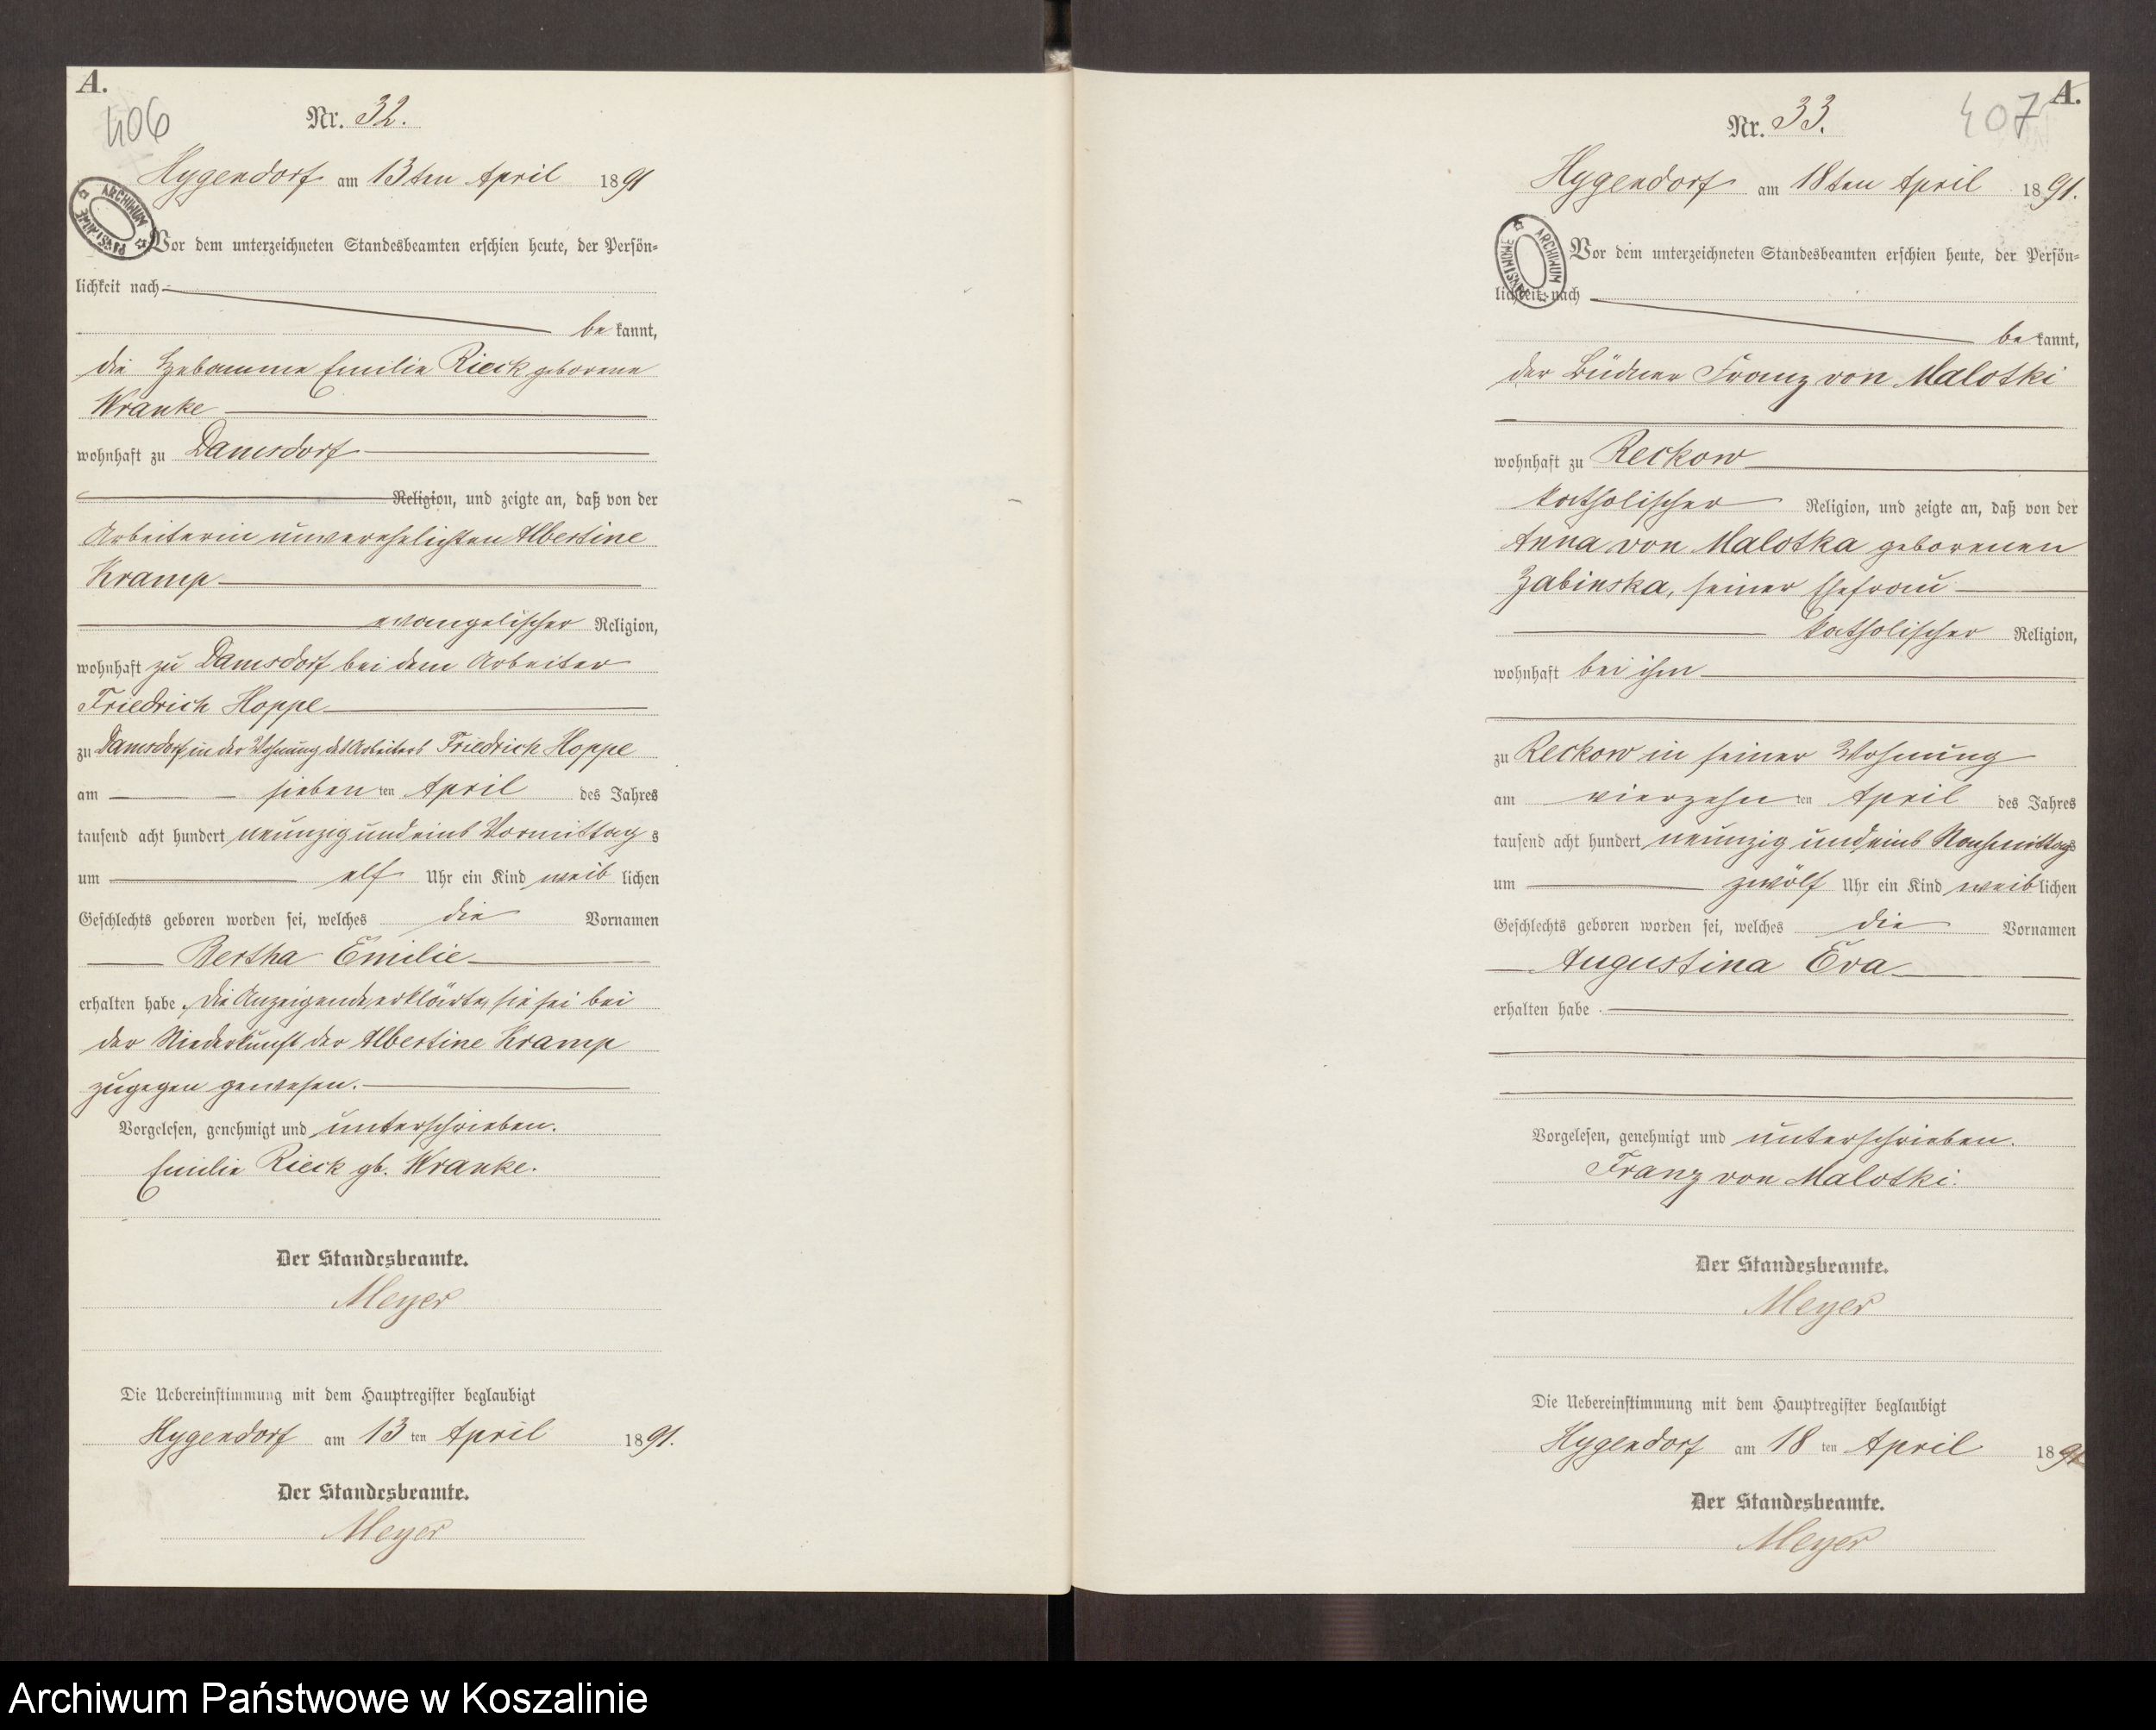 A.
406
Nr. 32.
Hygendorf am 13ten April 1891
ARCHIWUM PAŃSTWOWE
Vor dem unterzeichneten Standesbeamten erschien heute, der Persön=
lichkeit nach
be kannt,
die Hebamme Emilie Rieck geborene
Kranke
wohnhaft zu Damsdorf
Religion, und zeigte an, daß von der
Arbeiterin unverehelichten Albertine
Kramp
evangelischer Religion,
wohnhaft zu Damsdorf bei dem Arbeiter
Friedrich Hoppe
zu Damsdorf, in der Wohnung des Arbeiters Friedrich Hoppe
am sieben ten April des Jahres
tausend acht hundert neunzig und eins Vormittag s
um elf Uhr ein Kind weib lichen
Geschlechts geboren worden sei, welches die Vornamen
Bertha Emilie
erhalten habe. Die Anzeigende erklärte, sie sei bei
der Niederkunft der Albertine Kramp
zugegen gewesen.
Vorgelesen, genehmigt und unterschrieben.
Emilie Rieck gb. Kranke.
Der Standesbeamte.
Meyer
Die Uebereinstimmung mit dem Hauptregister beglaubigt
Hygendorf am 13 ten April 1891.
Der Standesbeamte.
Meyer
A.
407
Nr. 33.
Hygendorf am 18ten April 1891.
ARCHIWUM PAŃSTWOWE
Vor dem unterzeichneten Standesbeamten erschien heute, der Persön=
lichkeit nach
be kannt,
der Büdner Franz von Malotki
wohnhaft zu Reckow
katholischer Religion, und zeigte an, daß von der
Anna von Malotka geborenen
Zabinska, seiner Ehefrau
katholischer Religion,
wohnhaft bei ihm
zu Reckow in seiner Wohnung
am vierzehn ten April des Jahres
tausend acht hundert neunzig und eins Nachmittags
um zwölf Uhr ein Kind weib lichen
Geschlechts geboren worden sei, welches die Vornamen
Augustina Eva
erhalten habe
Vorgelesen, genehmigt und unterschrieben.
Franz von Malotki.
Der Standesbeamte.
Meyer
Die Uebereinstimmung mit dem Hauptregister beglaubigt
Hygendorf am 18 ten April 1891
Der Standesbeamte.
Meyer
Archiwum Państwowe w Koszalinie